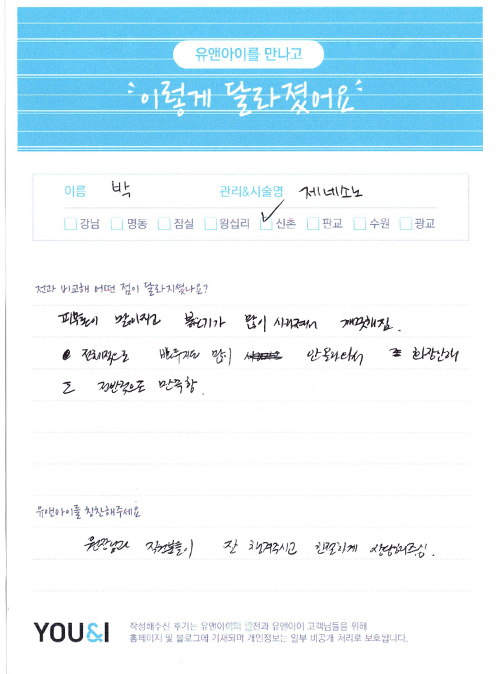 유앤아이를 만나고
이렇게 달라졌어요
이름 박 관리&시술명 제네소노
강남 명동 잠실 왕십리 신촌 판교 수원 광교
전과 비교해 어떤 점이 달라지셨나요?
피부톤이 맑아지고 붉은기가 많이 사라져서 깨끗해짐.
전체적으로 뾰루지도 많이 안올라와서 화장안해
도 전반적으로 만족함.
유앤아이를 칭찬해주세요
원장님과 직원분들이 잘 챙겨주시고 친절하게 상담해주심.
YOU&I
작성해주신 후기는 유앤아이의 발전과 유앤아이 고객님들을 위해
홈페이지 및 블로그에 기재되며 개인정보는 일부 비공개 처리로 보호됩니다.